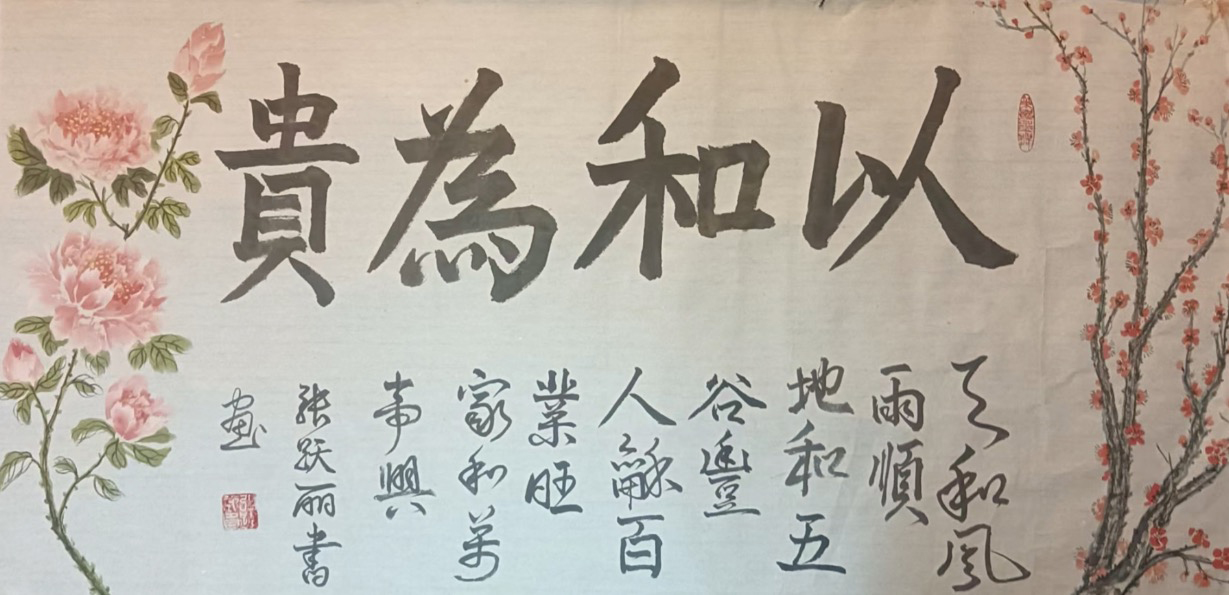 以和為貴
天和風
雨順
地和五
谷豐
人龢百
業旺
家和萬
事興
张跃丽書
画